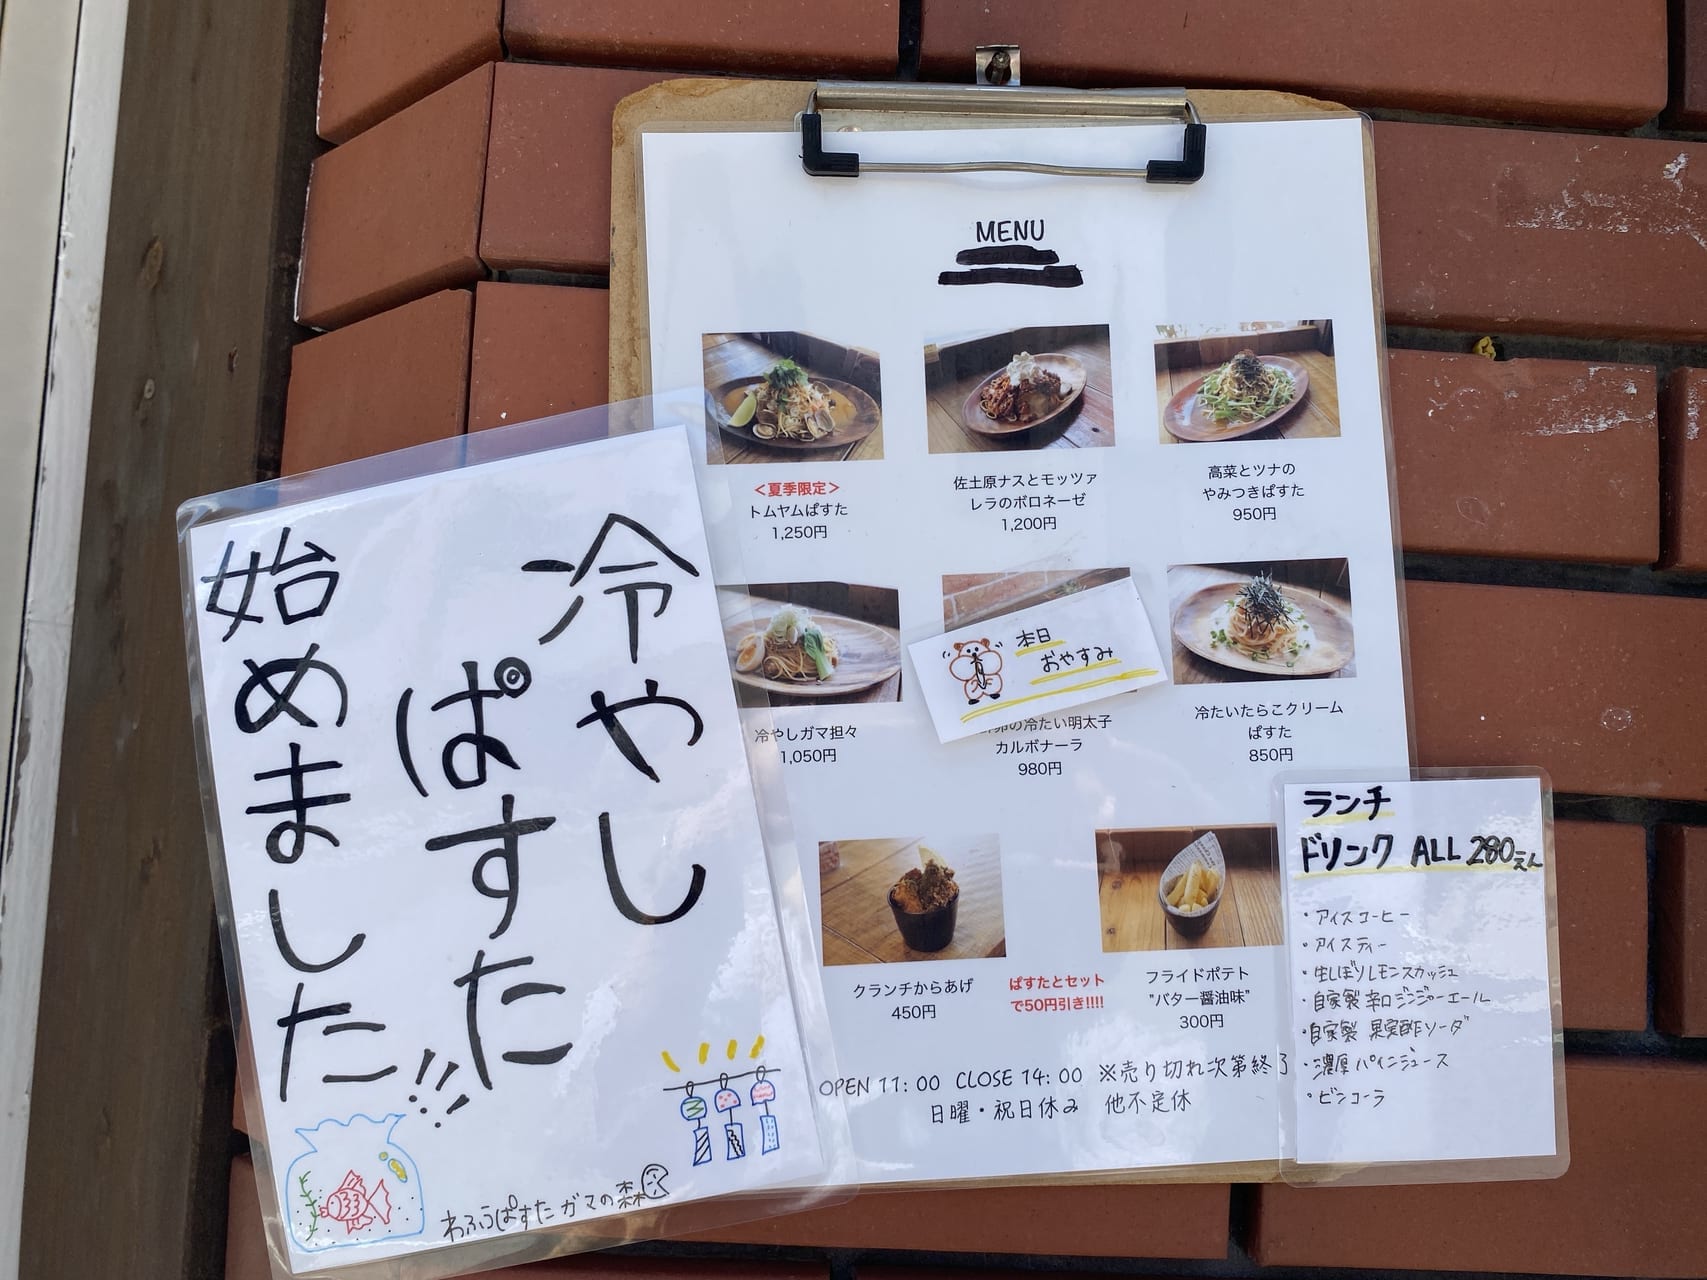 MENU
<夏季限定>
トムヤムぱすた
1,250円
佐土原ナスとモッツァ
レラのボロネーゼ
1,200円
高菜とツナの
やみつきぱすた
950円
冷やしガマ担々
1,050円
本日
おやすみ
卵の冷たい明太子
カルボナーラ
980円
冷たいたらこクリーム
ぱすた
850円
クランチからあげ
450円
ぱすたとセット
で50円引き!!!!
フライドポテト
"バター醤油味"
300円
OPEN 11:00 CLOSE 14:00 ※売り切れ次第終了
日曜・祝日休み 他不定休
冷やし
ぱすた
始めました!!
わふうぱすた ガマの森
ランチ
ドリンク ALL 280えん
・アイスコーヒー
・アイスティー
・生しぼりレモンスカッシュ
・自家製 辛口ジンジャーエール
・自家製 果実酢ソーダ
・濃厚パインジュース
・ビンコーラ